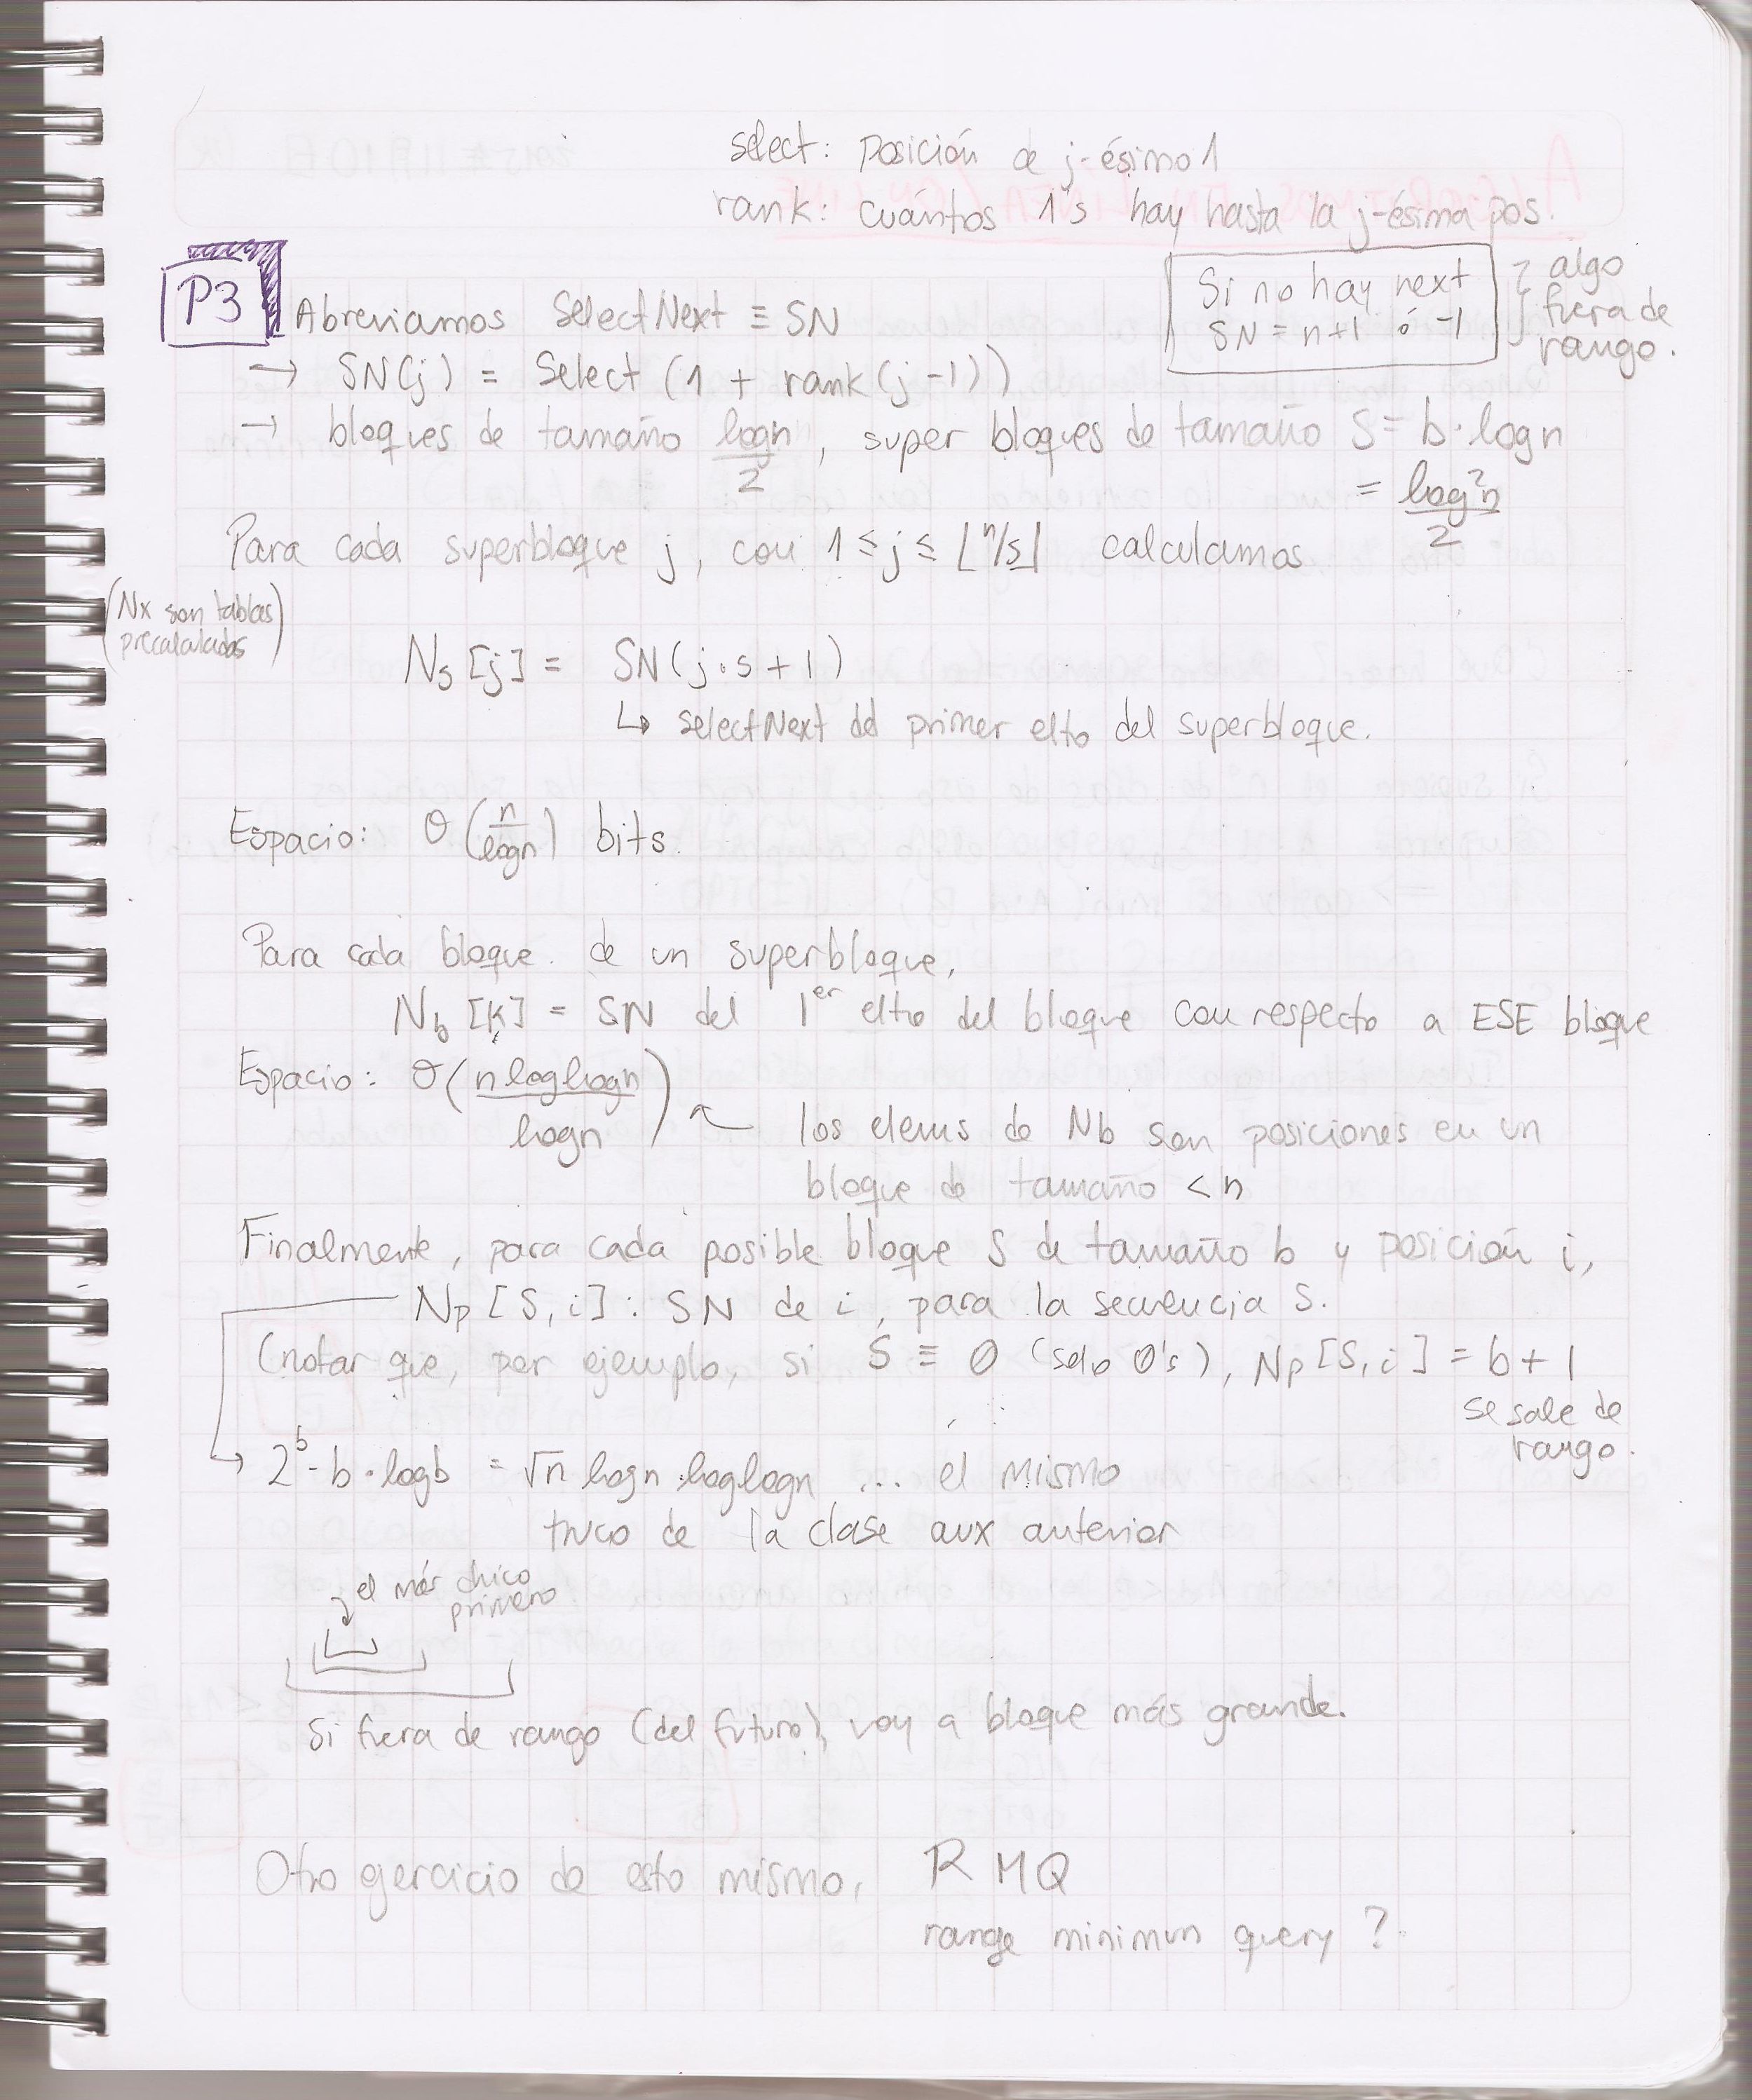 select: posición de j-ésimo 1
rank: cuántos 1's hay hasta la j-ésima pos.
P3
Abreviamos SelectNext ≡ SN
Si no hay next
SN = n+1 ó -1
algo
fuera de
rango.
→ SN(j) = Select (1 + rank(j-1))
→ bloques de tamaño logn/2, super bloques de tamaño S = b·logn
= log²n/2
Para cada superbloque j, con 1 ≤ j ≤ ⌊n/s⌋ calculamos
(Nx son tablas
precalculadas)
Ns[j] = SN(j·s+1)
↳ selectNext del primer elto del superbloque.
Espacio: O(n/logn) bits.
Para cada bloque de un superbloque,
Nb[k] = SN del 1er elto del bloque con respecto a ESE bloque
Espacio: O(n loglogn/logn) ← los elems de Nb son posiciones en un
bloque de tamaño < n
Finalmente, para cada posible bloque S de tamaño b y posición i,
Np[S,i]: SN de i, para la secuencia S.
(notar que, por ejemplo, si S ≡ 0 (solo 0's), Np[S,i] = b+1
se sale de
rango.
→ 2^b·b·logb = √n logn·loglogn ... el mismo
truco de la clase aux anterior
el más chico
primero
Si fuera de rango (del futuro), voy a bloque más grande.
Otro ejercicio de esto mismo, RMQ
range minimun query ?